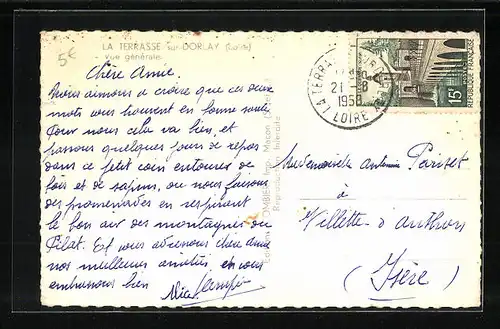 5€
LA TERRASSE sur DORLAY (Loire)
- Vue générale
Chère Amie.
Nous aimons à croire que ces deux
mots vous trouvent en bonne santé
Pour nous cela va bien, et
passons quelques jours de repos
dans ce petit coin entouré de
bois et de sapins, où nous faisons
des promenades en respirant
le bon air des montagnes du
Pilat. Et vous adressons chère Amie
nos meilleures amitiés, en vous
embrassant bien
LA TERRASSE SUR DORLAY
21 -8
1958
LOIRE
15F
REPUBLIQUE FRANÇAISE
Imp. Macon
Reproduction Interdite
Mademoiselle Antonia Pariset
à
Villette d'Anthon
(Isère)